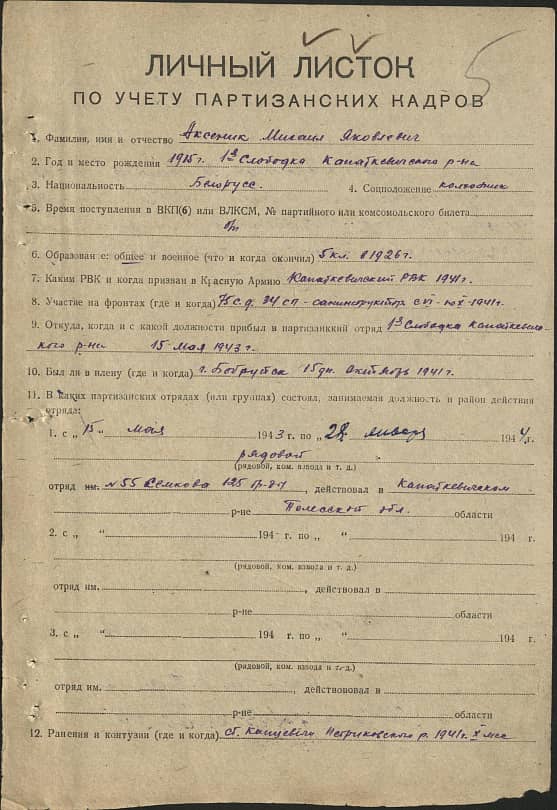 5
ЛИЧНЫЙ ЛИСТОК
ПО УЧЕТУ ПАРТИЗАНСКИХ КАДРОВ
1. Фамилия, имя и отчество Аксеник Михаил Яковлевич
2. Год и место рождения 1915 г. 1я Слободка Капаткевичского р-на
3. Национальность Белорусс. 4. Соцположение колхозник
5. Время поступления в ВКП(б) или ВЛКСМ, № партийного или комсомольского билета
б/п
6. Образование: общее и военное (что и когда окончил) 5 кл. в 1926 г.
7. Каким РВК и когда призван в Красную Армию Капаткевичский РВК 1941 г.
8. Участие на фронтах (где и когда) 75 с.д. 34 сп - санинструктор с VI - по X - 1941 г.
9. Откуда, когда и с какой должности прибыл в партизанский отряд 1я Слободка Капаткевичс-
кого р-на 15 мая 1943 г.
10. Был ли в плену (где и когда) г. Бобруйск 15 дн. Октябрь 1941 г.
11. В каких партизанских отрядах (или группах) состоял, занимаемая должность и район действия
отряда:
1. с „ 15 “ мая 1943 г. по „ 28 “ января 1944 г.
рядовой
(рядовой, ком. взвода и т. д.)
отряд им. №55 Семкова 125 бр-ды, действовал в Капаткевичском
р-не Полесской обл. области
2. с „ “ 194 г. по „ “ 194 г
(рядовой, ком. взвода и т. д.)
отряд им. , действовал в
р-не области
3. с „ “ 194 г. по „ “ 194 г
(рядовой, ком. взвода и т. д.)
отряд им. , действовал в
р-не области
12. Ранения и контузии (где и когда) ст. Копцевичи Петриковского р. 1941 г. X м-це